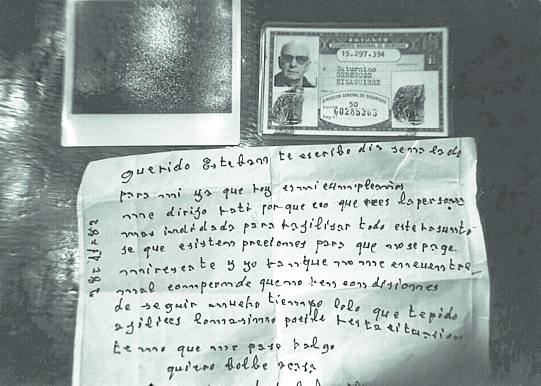 ESPAÑA
DOCUMENTO NACIONAL DE IDENTIDAD
15.297.394
Saturnino
ORBEGOZO
EIZAGUIRRE
DIRECCION GENERAL DE SEGURIDAD
50
00285363
querido Esteban te escribo dia senalado
para mi ya que hoy es mi cumpleanos
me dirijo a ti porque creo que eres la persona
mas indicada para agilisar todo este asunto
se que esisten preciones para que no se page.
mi y yo aunque no me encuentre
mal comprende que no en condisiones
de seguir mucho tiempo lo que te pido
agilices lo masimo posible esta situasion
temo que me pase algo
quiero bolbe casa
28 z 11 z 82